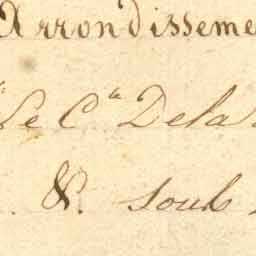 Arrondisseme
Le C.en Dela
&. sous